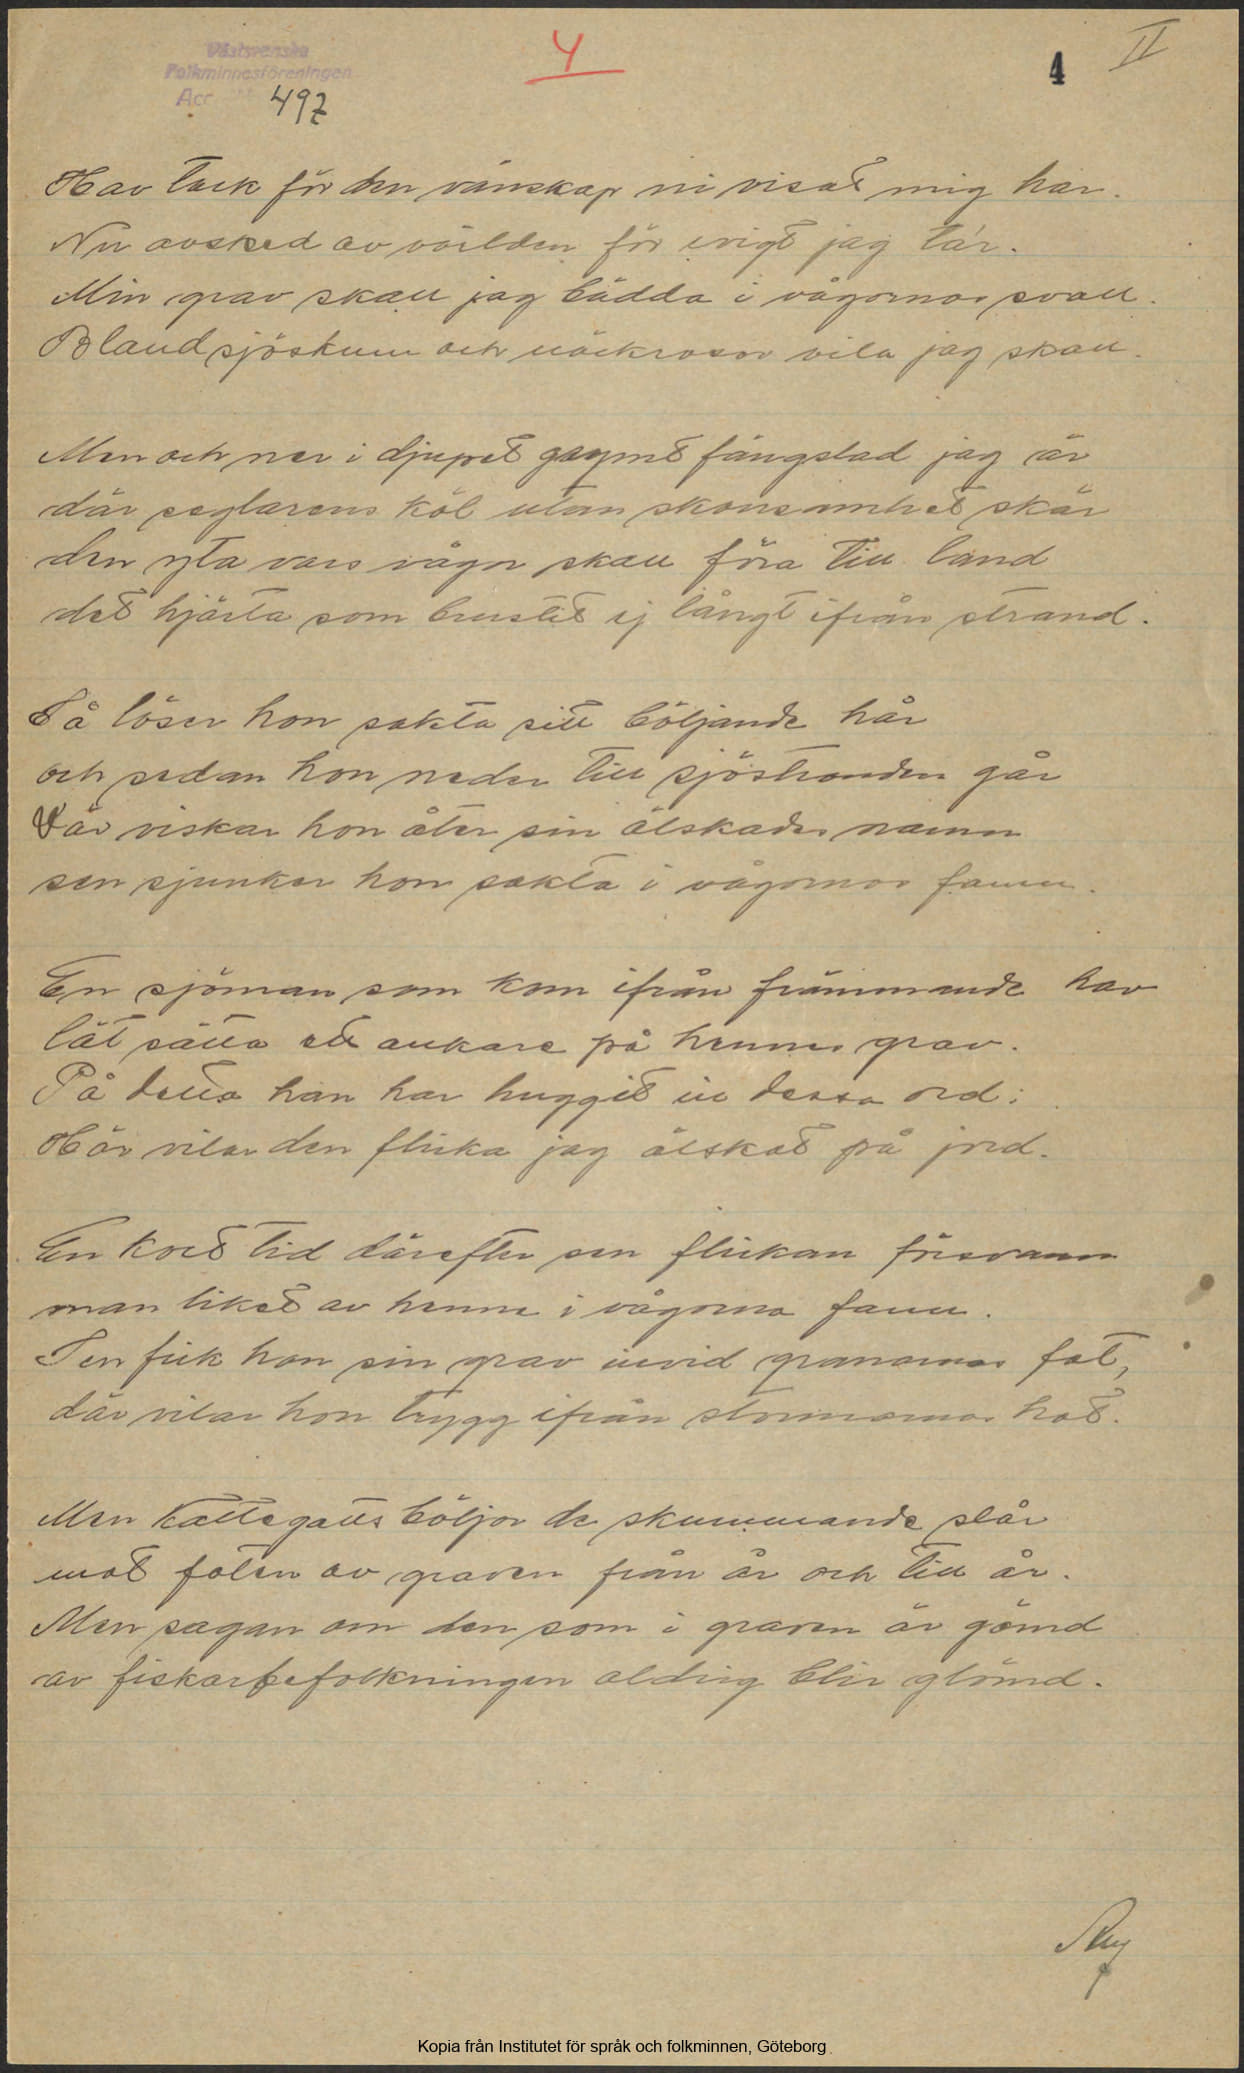 Västsvenska
Folkminnesföreningen
Acc 497
4
4
II
Hav tack för den vänskap ni visat mig här.
Nu avsked av världen för evigt jag ta'r.
Min grav skall jag bädda i vågornas svall.
Bland sjöskum och näckrosor vila jag skall.
Men och ner i djupet gaymt fängslad jag är
där seglarens köl utan skonsamhet skär
den yta vars vågor skall föra till land
det hjärta som brustit ej långt ifrån strand.
Så löser hon sakta sitt böljande hår
och sedan hon neder till sjöstranden går
Där viskar hon åter sin älskades namn
sen sjunker hon sakta i vågornas famn.
En sjöman som kom ifrån främmande hav
lät sätta ett ankare på hennes grav.
På detta han har huggit in dessa ord:
Här vilar den flicka jag älskat på jord.
En kort tid därefter sen flickan försvann
man liket av henne i vågorna fann.
Sen fick hon sin grav invid granarnas fot,
där vilar hon trygg ifrån stormarnas hot.
Men Kattegatts böljor de skummande slår
mot foten av graven från år och till år.
Men sagan om den som i graven är gömd
av fiskarbefolkningen aldrig blir glömd.
Kopia från Institutet för språk och folkminnen, Göteborg